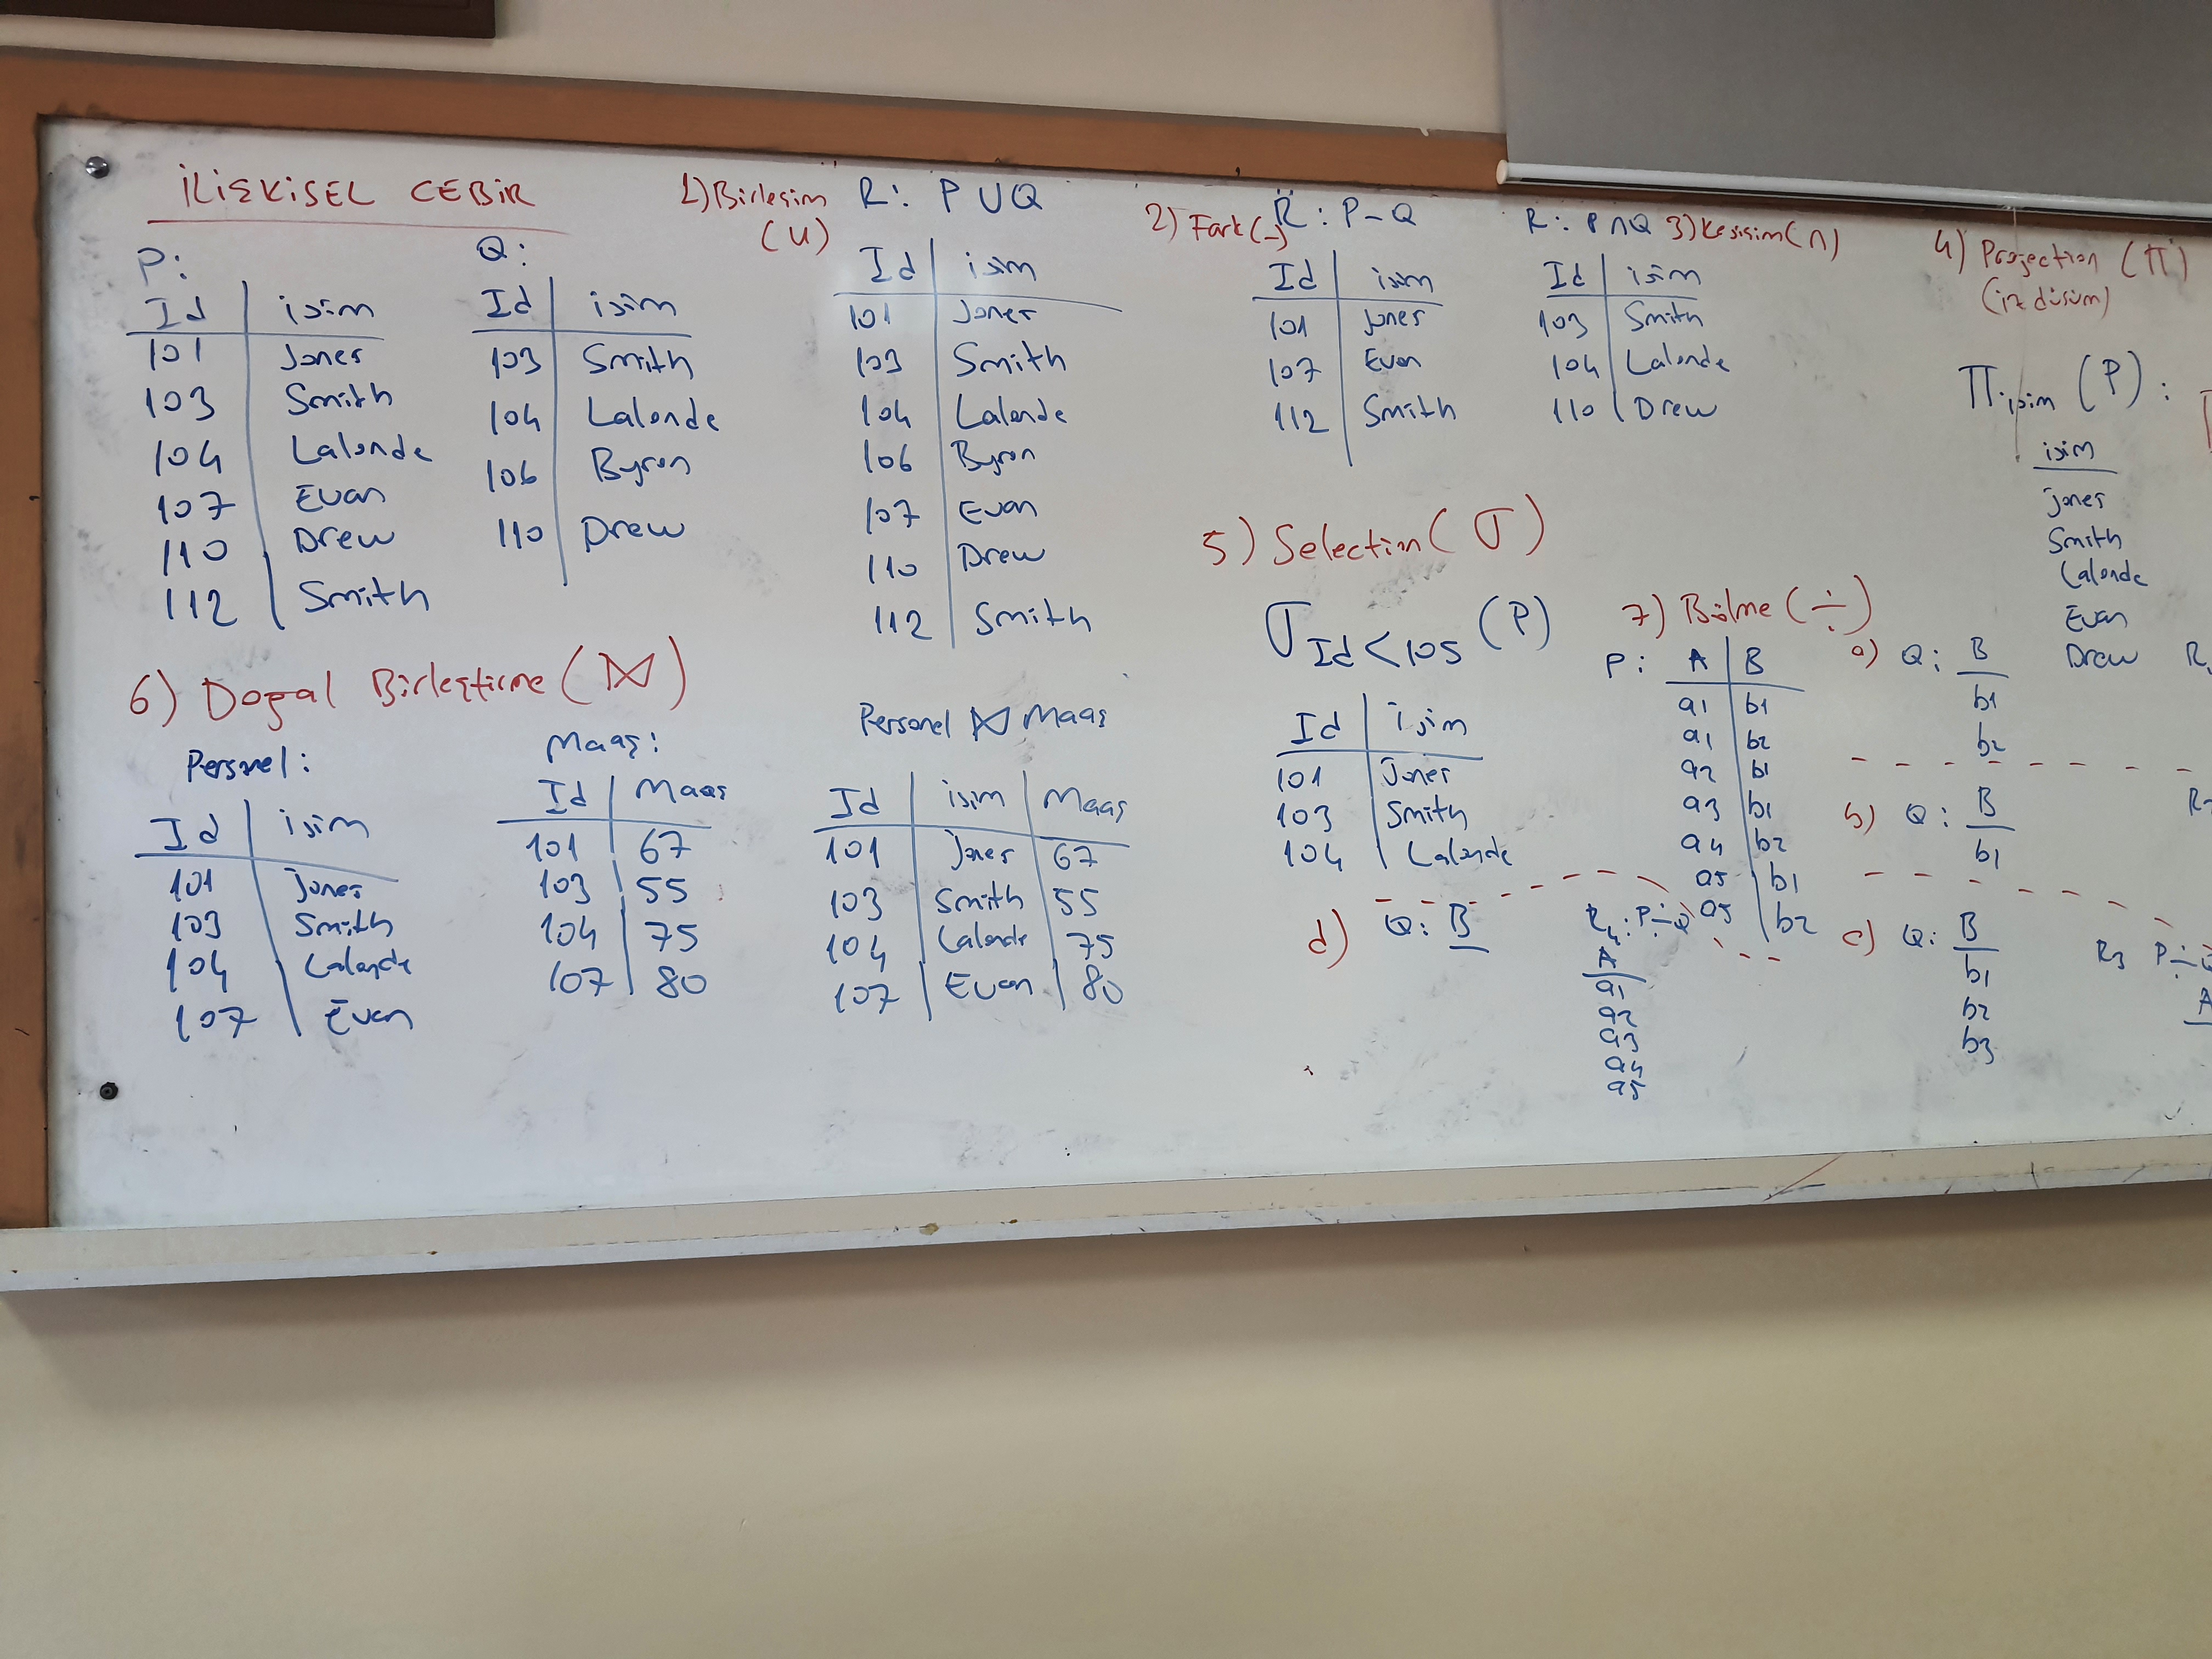 İLİŞKİSEL CEBİR
P:
Id | isim
101 | Jones
103 | Smith
104 | Lalonde
107 | Evan
110 | Drew
112 | Smith
Q:
Id | isim
103 | Smith
104 | Lalonde
106 | Byron
110 | Drew
1) Birleşim (U)
R: P U Q
Id | isim
101 | Jones
103 | Smith
104 | Lalonde
106 | Byron
107 | Evan
110 | Drew
112 | Smith
2) Fark (-)
R: P - Q
Id | isim
101 | Jones
107 | Evan
112 | Smith
R: P ∩ Q 3) Kesişim (∩)
Id | isim
103 | Smith
104 | Lalonde
110 | Drew
4) Projection (π)
(iz düşüm)
π isim (P):
isim
Jones
Smith
Lalonde
Evan
Drew
5) Selection (σ)
σ Id < 105 (P)
Id | isim
101 | Jones
103 | Smith
104 | Lalonde
6) Dogal Birleştirme (⋈)
Personel:
Id | isim
101 | Jones
103 | Smith
104 | Lalonde
107 | Evan
Maaş:
Id | Maaş
101 | 67
103 | 55
104 | 75
107 | 80
Personel ⋈ Maaş
Id | isim | Maaş
101 | Jones | 67
103 | Smith | 55
104 | Lalonde | 75
107 | Evan | 80
7) Bölme (÷)
P: A | B
a1 | b1
a1 | b2
a2 | b1
a3 | b1
a4 | b2
a5 | b1
a5 | b2
a) Q: B
b1
b2
b) Q: B
b1
c) Q: B
b1
b2
b3
R3 P ÷ Q
A
d) Q: B
R4: P ÷ Q
A
a1
a2
a3
a4
a5